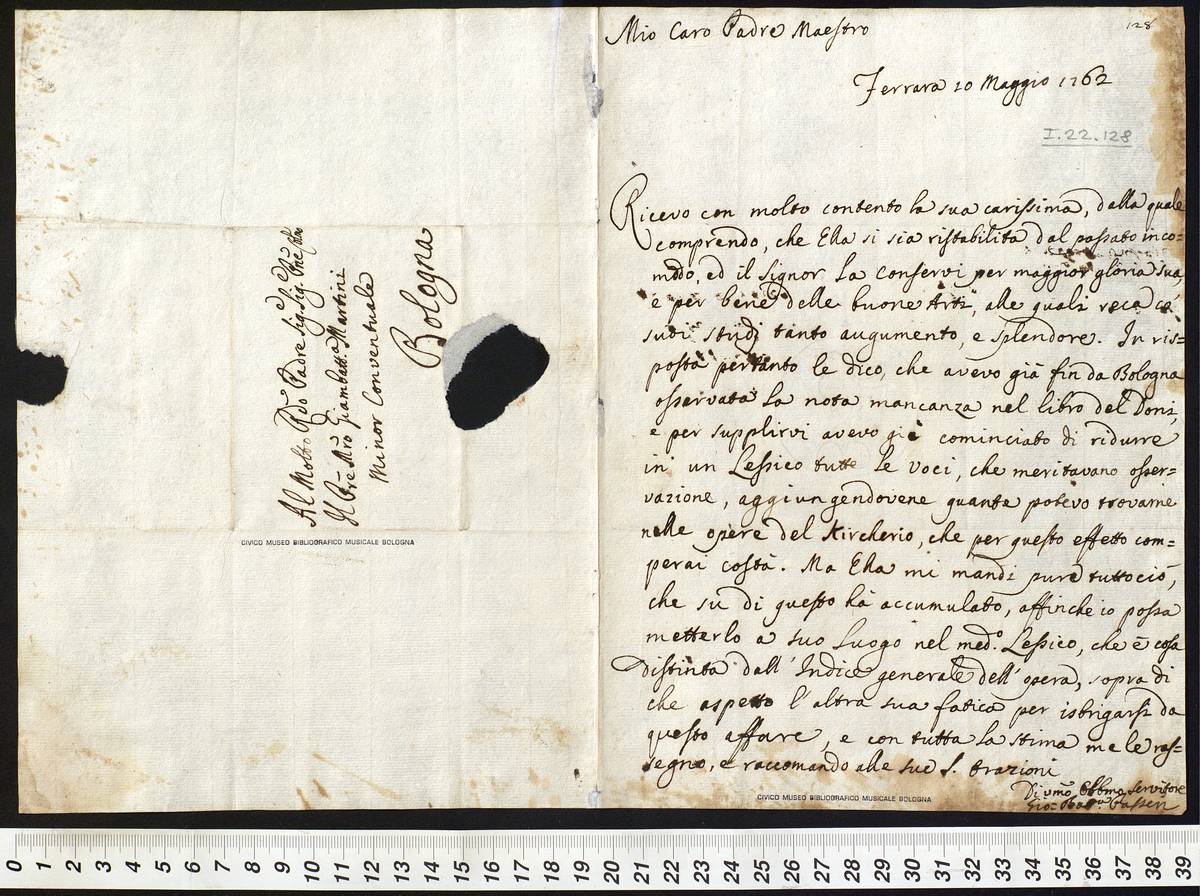 Mio Caro Padre Maestro
128
Ferrara 20 Maggio 1762
I.22.128
Ricevo con molto contento la sua carissima, dalla quale
comprendo, che Ella si sia ristabilita dal passato inco=
modo, ed il Signor la conservi per maggior gloria sua,
e per bene delle buone Arti, alle quali reca co'
suoi studj tanto augumento, e splendore. In ris=
posta pertanto le dico, che avevo già fin da Bologna
osservata la nota mancanza nel libro del Doni,
e per supplirvi avevo già cominciato di ridurre
in un Lessico tutte le voci, che meritavano osser=
vazione, aggiungendovene quante potevo trovarne
nelle opere del Kircherio, che per questo effetto com=
perai costà. Ma Ella mi mandi pure tuttociò,
che su di questo hà accumulato, affinche io possa
metterlo a suo luogo nel med.º Lessico, che è cosa
distinta dall'Indice generale dell'opera, sopra di
che aspetto l'altra sua fatica per isbrigarsi da
questo affare, e con tutta la stima me le ras=
segno, e raccomando alle sue S. Orazioni
Di umõ Obbmo Servitore
Gio: Passeri
Al Molto Rdo Padre Sig. Sig. Pre
Il Pre Mro Giambatta Martini
Minor Conventuale
Bologna
CIVICO MUSEO BIBLIOGRAFICO MUSICALE BOLOGNA
CIVICO MUSEO BIBLIOGRAFICO MUSICALE BOLOGNA
0 1 2 3 4 5 6 7 8 9 10 11 12 13 14 15 16 17 18 19 20 21 22 23 24 25 26 27 28 29 30 31 32 33 34 35 36 37 38 39